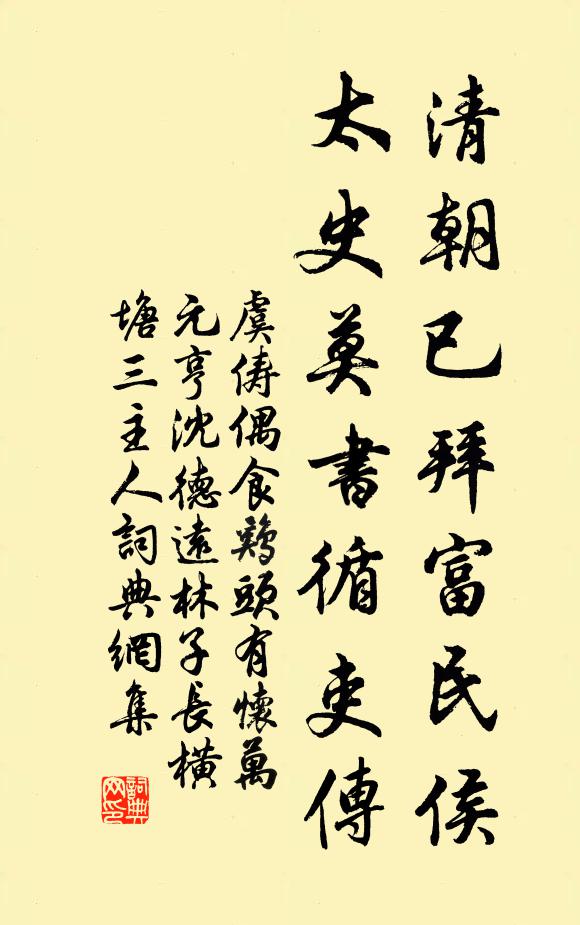 清朝已拜富民侯
太史莫書循吏傳
虞儔偶食鷄頭有懷萬
元亨沈德遠林子長橫
塘三主人詞典網集
詞典
网印